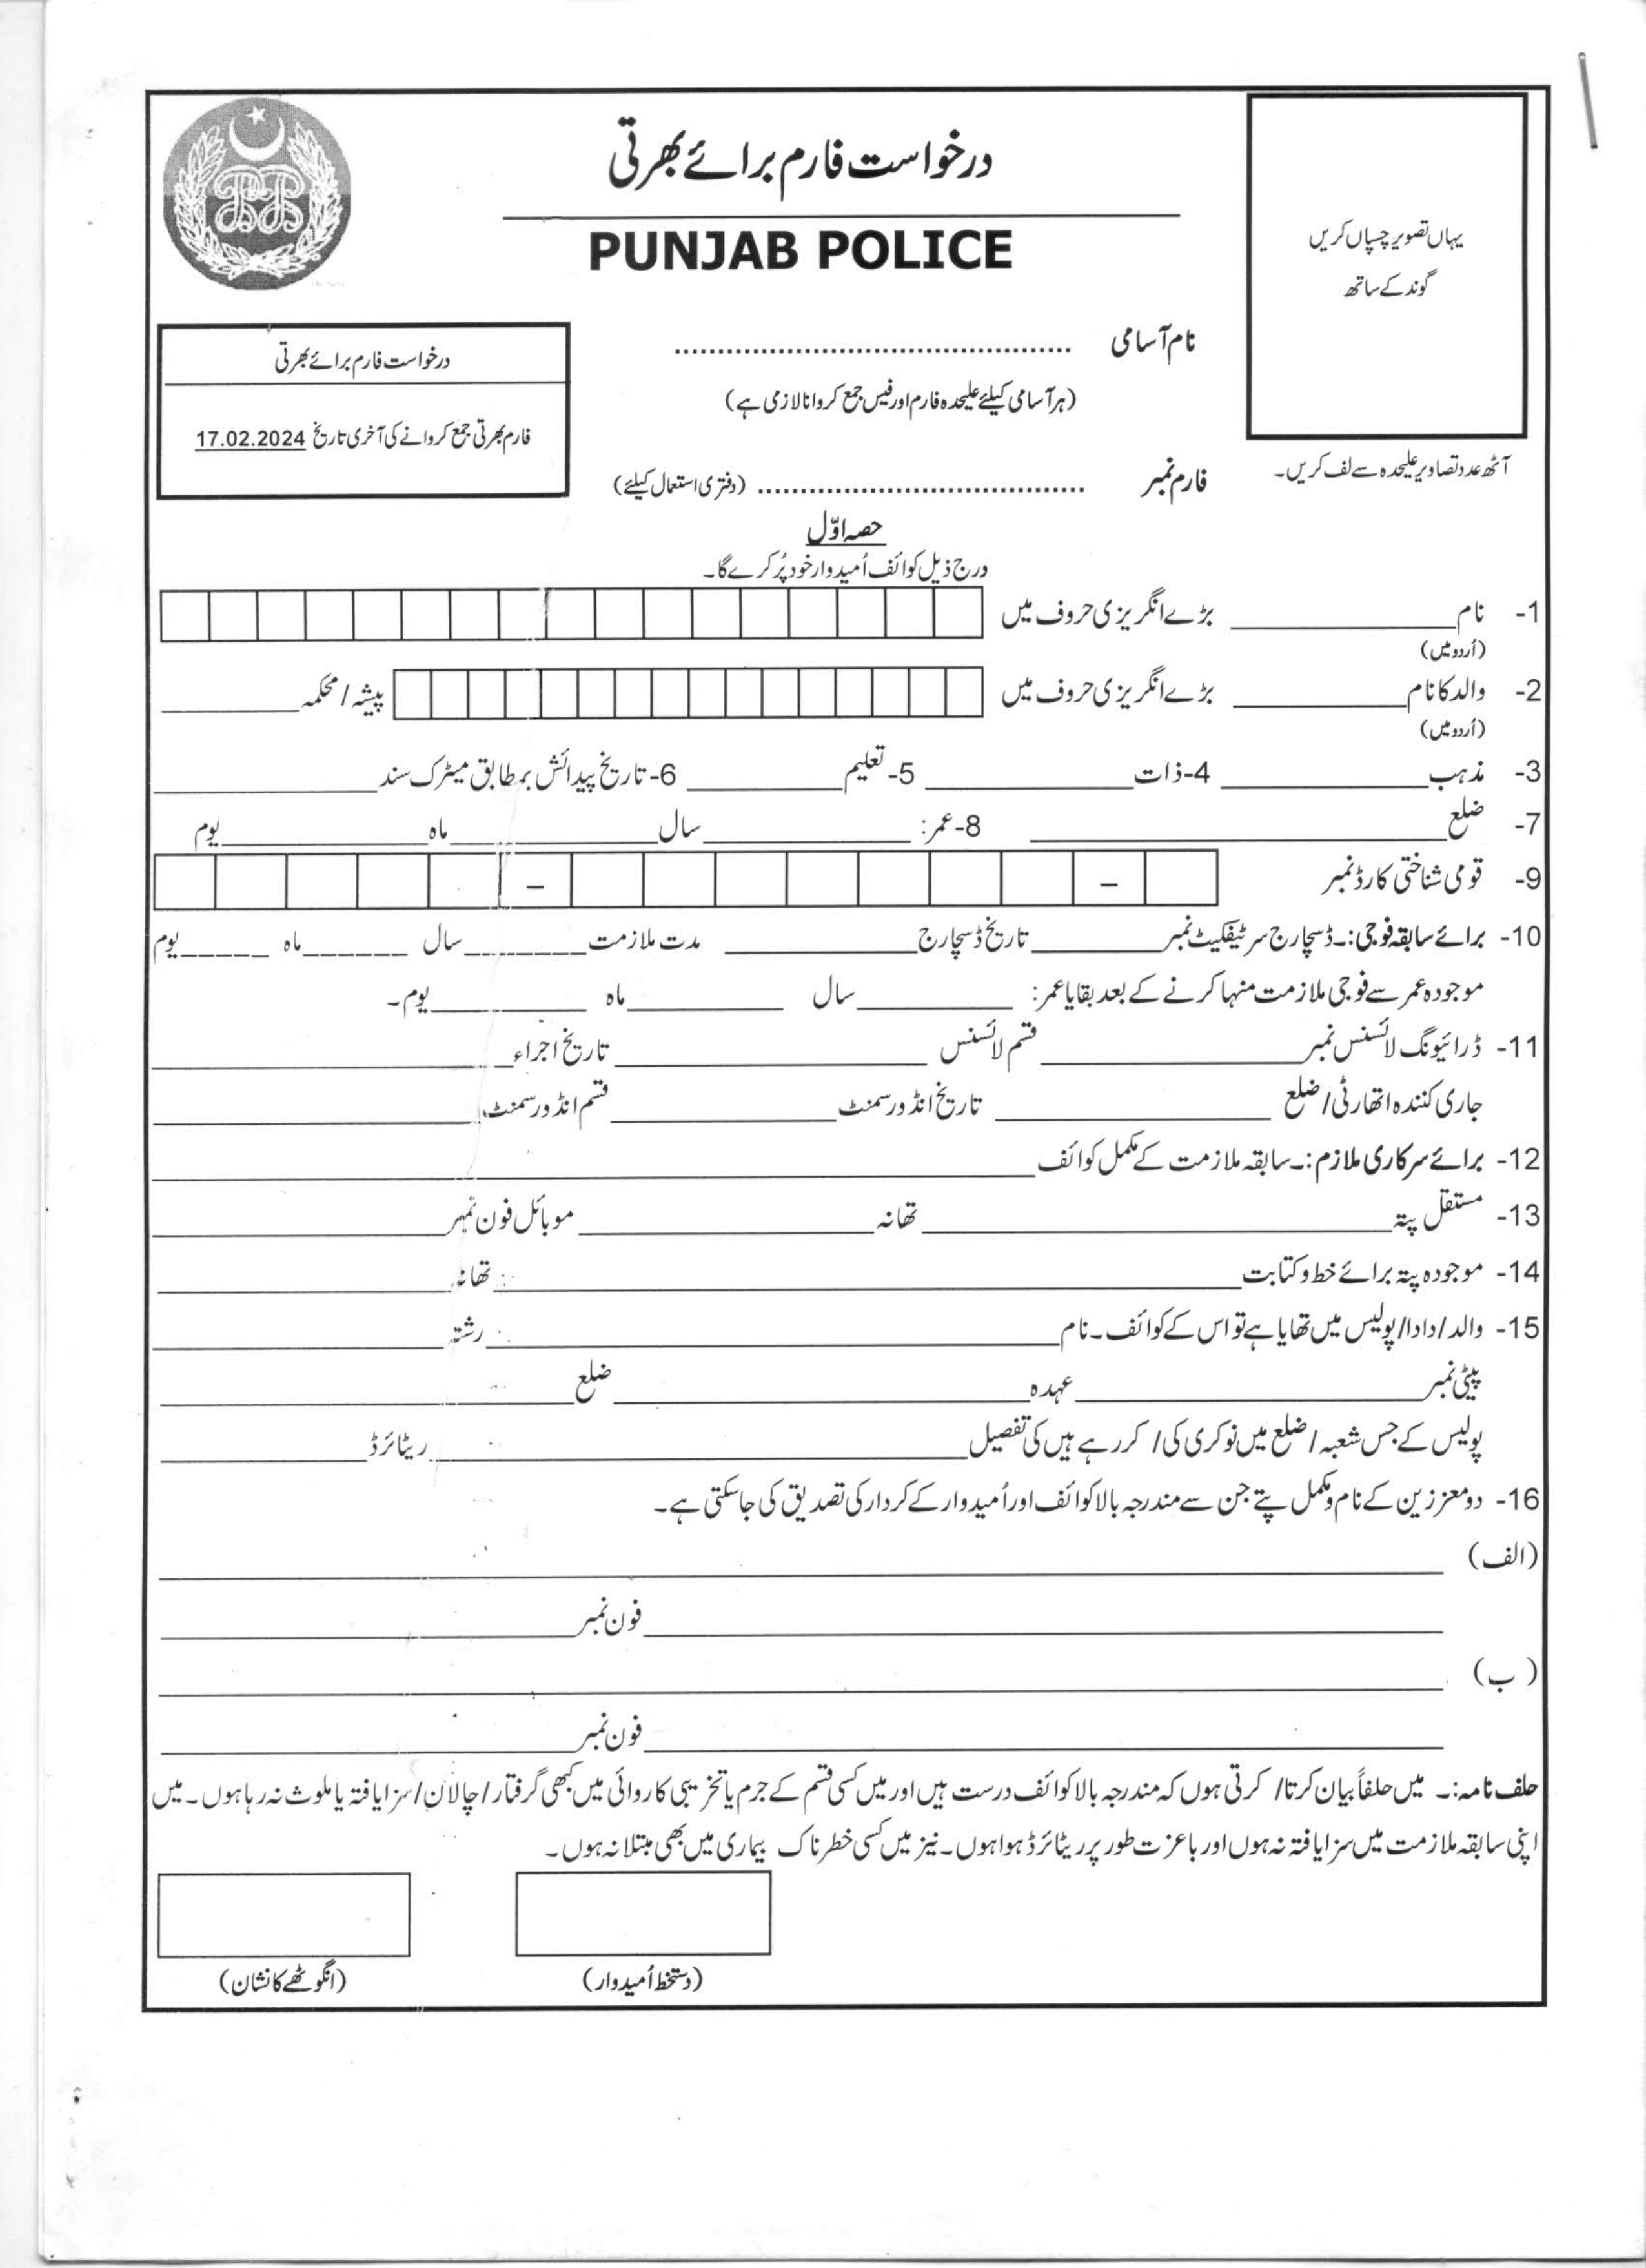 درخواست فارم برائے بھرتی
PUNJAB POLICE
یہاں تصویر چسپاں کریں
گوند کے ساتھ
نام آسامی ............................................
(ہر آسامی کیلئے علیحدہ فارم اور فیس جمع کروانا لازمی ہے)
درخواست فارم برائے بھرتی
فارم بھرتی جمع کروانے کی آخری تاریخ 17.02.2024
آٹھ عدد تصاویر علیحدہ سے لف کریں۔
فارم نمبر .................................... (دفتری استعمال کیلئے)
حصہ اوّل
درج ذیل کوائف اُمیدوار خود پُر کرے گا۔
1- نام ____________ بڑے انگریزی حروف میں
(اُردو میں)
2- والد کا نام ____________ بڑے انگریزی حروف میں پیشہ / محکمہ ________
(اُردو میں)
3- مذہب ____________ 4-ذات ____________ 5-تعلیم ________ 6-تاریخ پیدائش بمطابق میٹرک سند ____________
7- ضلع ____________ 8-عمر: ____________ سال ____________ ماہ ____________ یوم
9- قومی شناختی کارڈ نمبر – –
10- برائے سابقہ فوجی:۔ ڈسچارج سرٹیفکیٹ نمبر ________ تاریخ ڈسچارج ________ مدت ملازمت ________ سال ______ ماہ ______ یوم
موجودہ عمر سے فوجی ملازمت منہا کرنے کے بعد بقایا عمر: ________ سال ________ ماہ ________ یوم۔
11- ڈرائیونگ لائسنس نمبر ____________ قسم لائسنس ____________ تاریخ اجراء ____________
جاری کنندہ اتھارٹی/ ضلع ____________ تاریخ انڈورسمنٹ ____________ قسم انڈورسمنٹ ____________
12- برائے سرکاری ملازم:۔ سابقہ ملازمت کے مکمل کوائف ____________
13- مستقل پتہ ____________ تھانہ ____________ موبائل فون نمبر ____________
14- موجودہ پتہ برائے خط و کتابت ____________ تھانہ ____________
15- والد/ دادا/ پولیس میں تھا یا ہے تو اس کے کوائف۔ نام ____________ رشتہ ____________
پیٹی نمبر ____________ عہدہ ____________ ضلع ____________
پولیس کے جس شعبہ / ضلع میں نوکری کی/ کر رہے ہیں کی تفصیل ____________ ریٹائرڈ ____________
16- دو معززین کے نام و مکمل پتے جن سے مندرجہ بالا کوائف اور اُمیدوار کے کردار کی تصدیق کی جا سکتی ہے۔
(الف) ____________
____________ فون نمبر ____________
(ب) ____________
____________ فون نمبر ____________
حلف نامہ:۔ میں حلفاً بیان کرتا/ کرتی ہوں کہ مندرجہ بالا کوائف درست ہیں اور میں کسی قسم کے جرم یا تخریبی کاروائی میں کبھی گرفتار/ چالان/ سزا یافتہ یا ملوث نہ رہا ہوں۔ میں
اپنی سابقہ ملازمت میں سزا یافتہ نہ ہوں اور باعزت طور پر ریٹائرڈ ہوا ہوں۔ نیز میں کسی خطرناک بیماری میں بھی مبتلا نہ ہوں۔
(دستخط اُمیدوار) (انگوٹھے کا نشان)